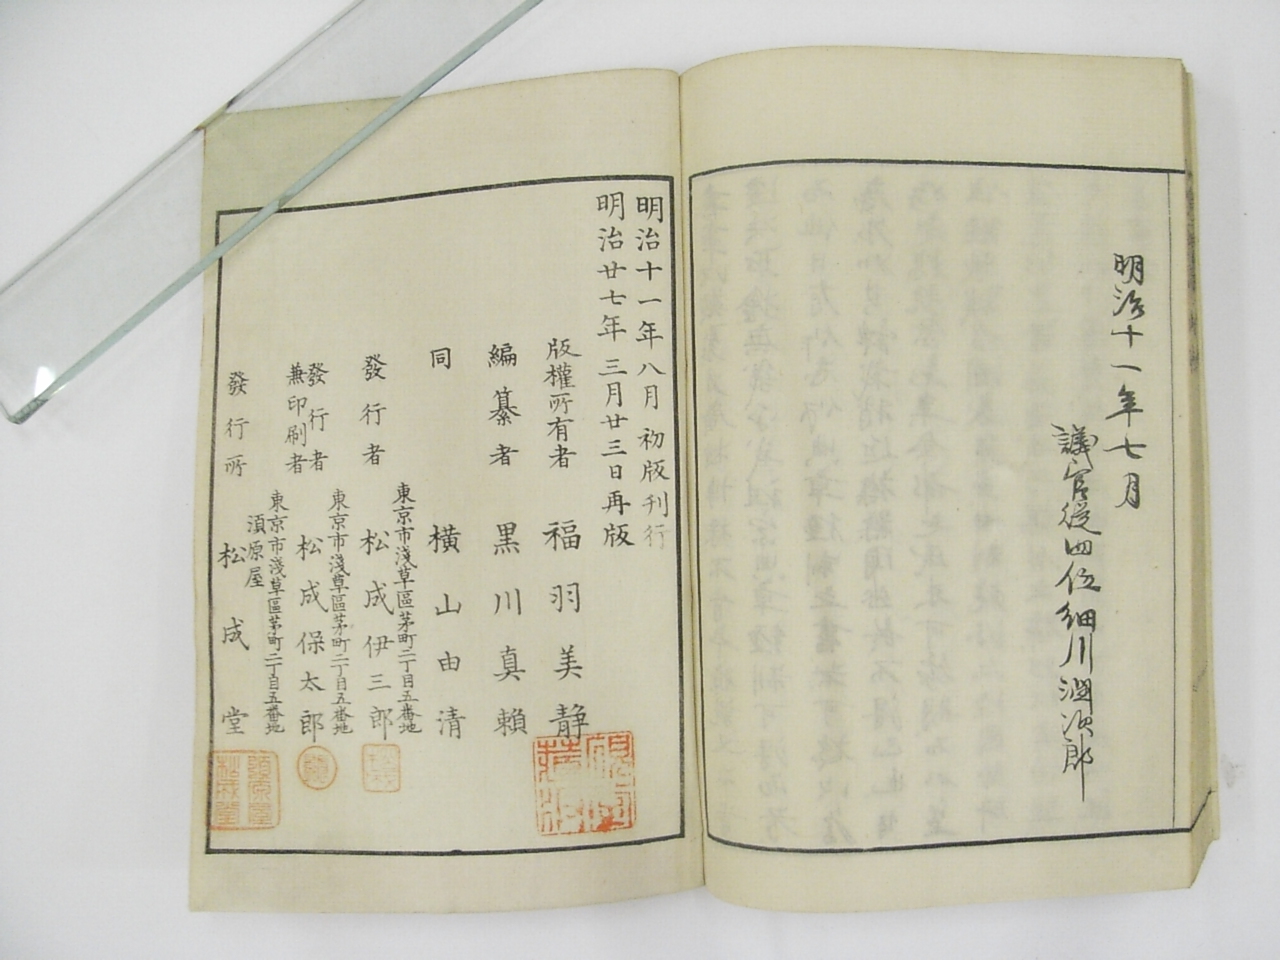 明治十一年七月
議官從四位細川潤次郎
明治十一年八月初版刊行
明治廿七年三月廿三日再版
版權所有者 福羽美静
編纂者 黒川真頼
同 横山由清
東京市淺草區茅町二丁目五番地
發行者 松成伊三郎
東京市淺草區茅町二丁目五番地
發行者兼印刷者 松成保太郎
東京市淺草區茅町二丁目五番地
須原屋
發行所 松成堂